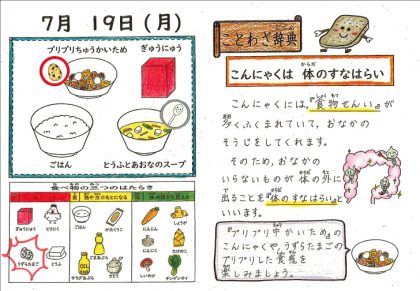 7月 19日(月)
プリプリちゅうかいため
ぎゅうにゅう
ごはん
とうふとあおなのスープ
食べ物の三つのはたらき
ぎゅうにゅう
とりにく
うずらたまご
とうふ
ごはん
ごまあぶら
さとう
にんじん
にんにく
しょうが
たけのこ
チンゲンサイ
ことわざ辞典
こんにゃくは 体のすなはらい
からだ
こんにゃくには、『食物せんい』が
多くふくまれていて、おなかの
そうじをしてくれます。
そのため、おなかの
いらないものが 体の外に
出ることを『体のすなはらい』と
いいます。
『プリプリ中かいため』の
こんにゃくや、うずらたまごの
プリプリした食感を
楽しみましょう。